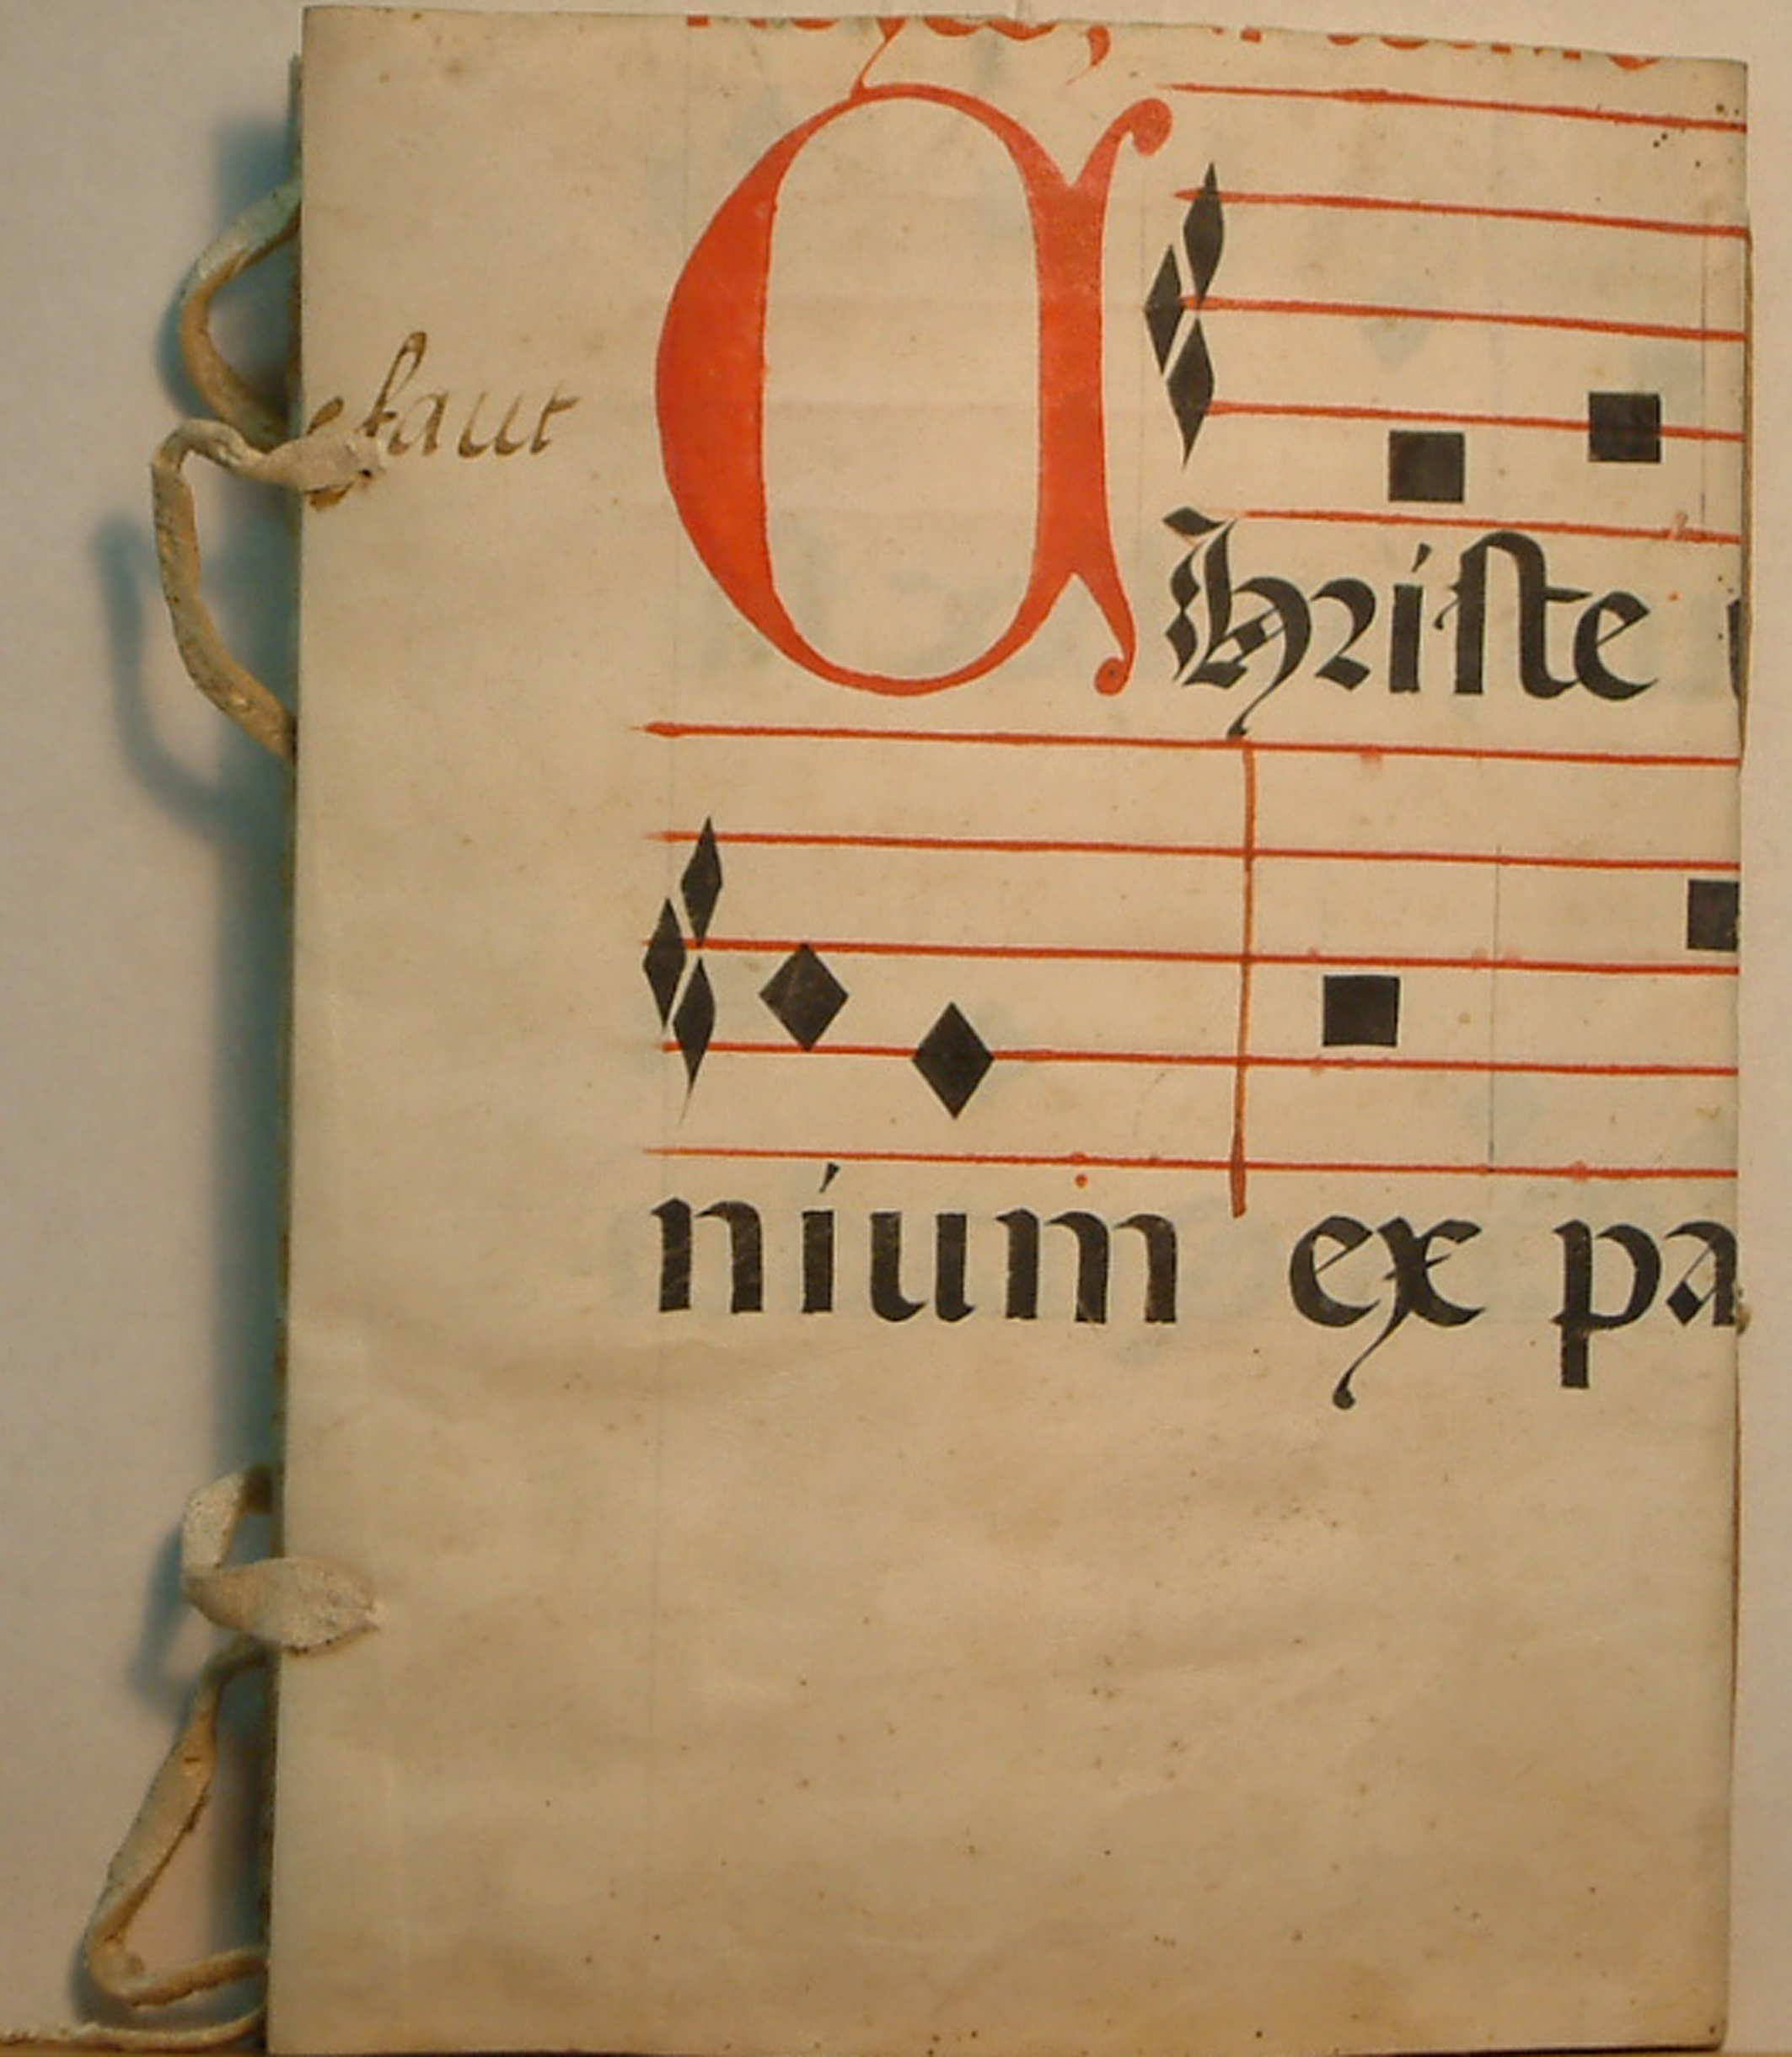 efaut
Christe
nium ex pa